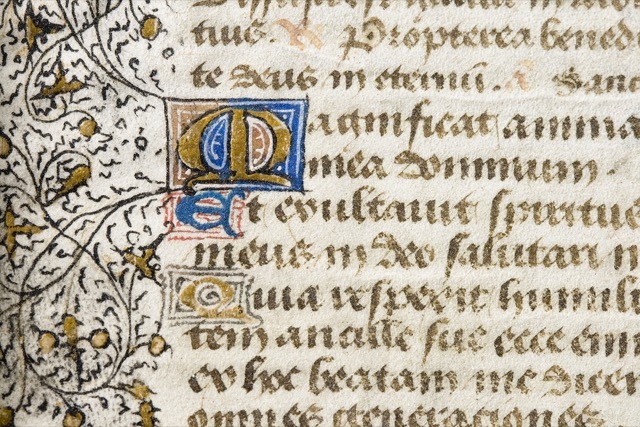 tuis. V Propterea bened
te deus in eternū. A Sanc
Magnificat anima
mea dominum.
Et exultauit spiritus
meus in deo salutari m
Quia respexit humili
tem ancille sue ecce eni
ex hoc beatam me dicen
omnes generaciones